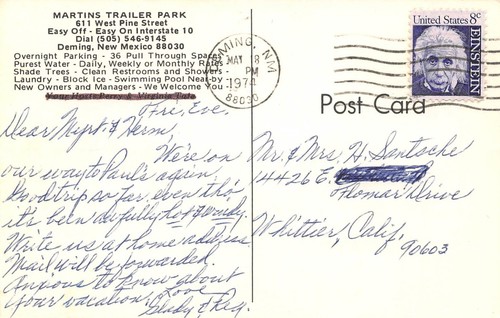 MARTINS TRAILER PARK
611 West Pine Street
Easy Off - Easy On Interstate 10
Dial (505) 546-9145
Deming, New Mexico 88030
Overnight Parking - 36 Pull Through Spaces
Purest Water - Daily, Weekly or Monthly Rates
Shade Trees - Clean Restrooms and Showers -
Laundry - Block Ice - Swimming Pool Nearby
New Owners and Managers - We Welcome You
Fri, Eve.
Dear Myrt & Herm,
We're on
our way to Paul's again.
Good trip so far, even tho'
it's been awfully hot & windy.
Write us at home address
Mail will be forwarded.
Anxious to know about
your vacation. Love
Glady & Reg.
DEMING, NM
MAY 8
PM
1974
88030
United States 8c
EINSTEIN
Post Card
Mr. & Mrs. H. Santoche
14426 E.
Drive
Whittier, Calif.
90603